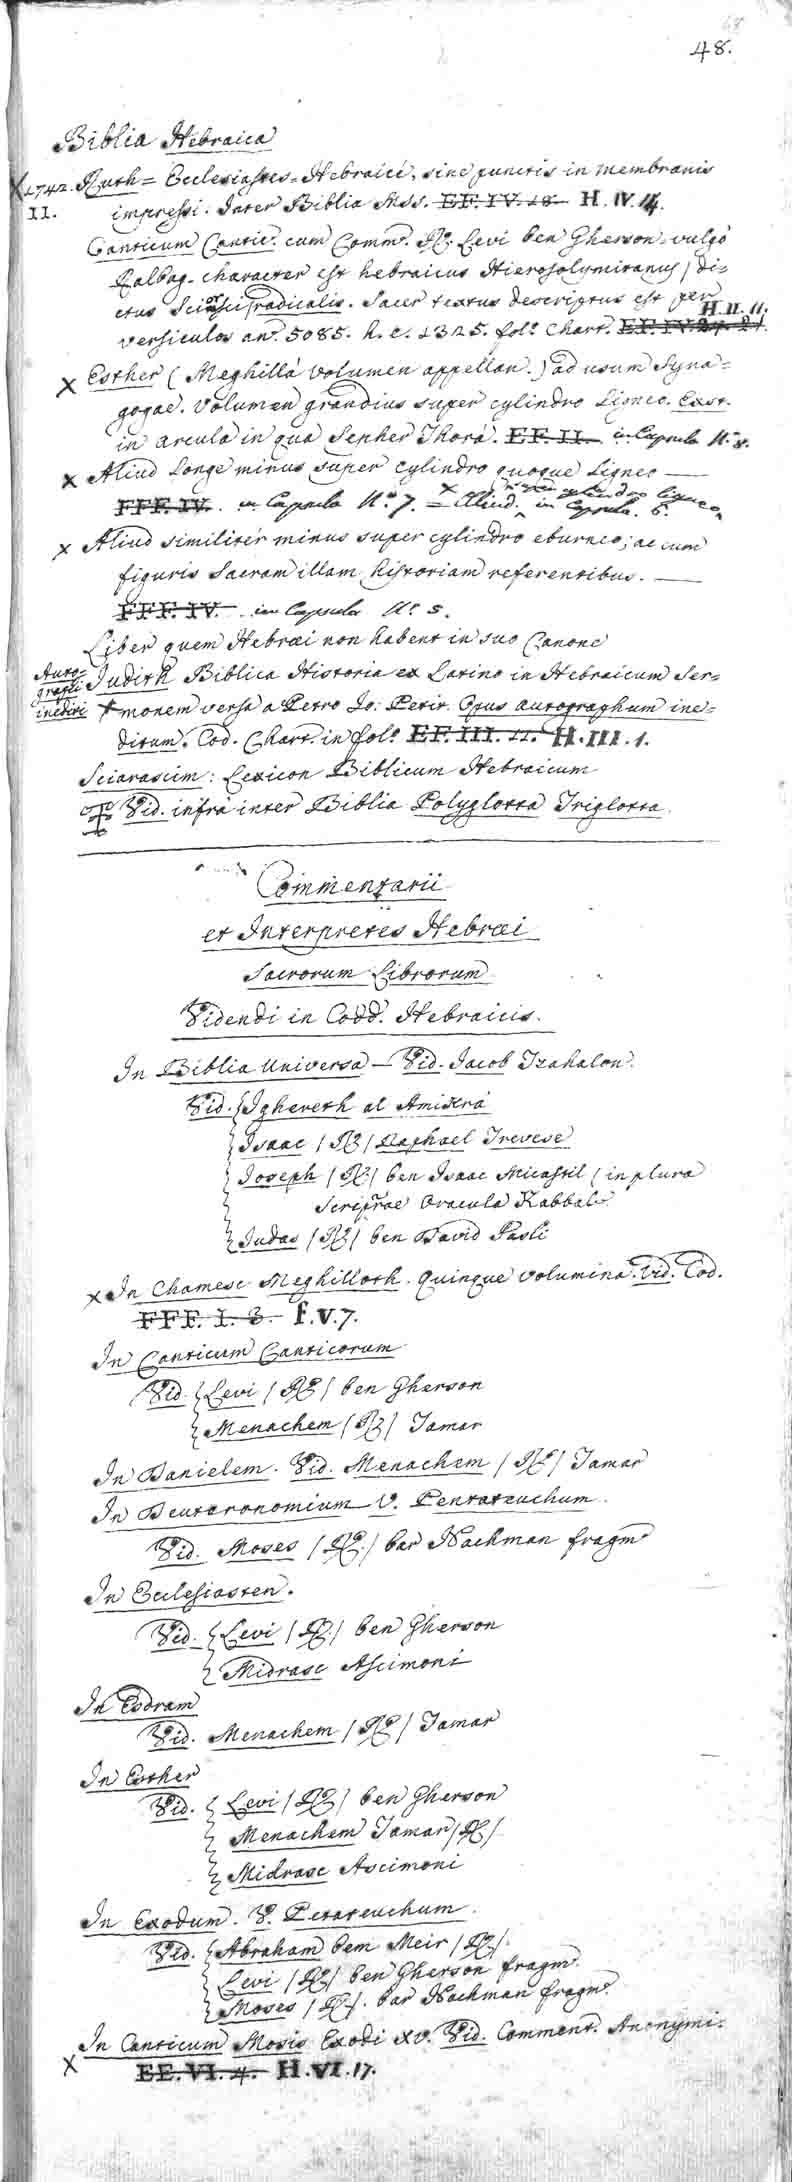 68
48.
Biblia Hebraica
X 1742. Ruth = Ecclesiastes = Hebraicè, sine punctis in membranis
II. impressi. Inter Biblia Mss. EE. IV. 18. H. IV. 14.
Canticum Cantic. cum Comm. R. Levi ben Gherson = vulgò
Ralbag - character est hebraicus Hierosolymitanus, di=
ctus radicalis. Sacer textus descriptus est per
versiculos an. 5085. h. e. 1325. fol. Chart. EE. IV. 21. H. II. 11.
X Esther (Meghillà volumen appellan.) ad usum Syna=
gogae. Volumen grandius super cylindro Ligneo. Exst.
in arcula in qua Sepher Thorà. EE. II. in Capsula N. 8.
X Aliud Longe minus super cylindro quoque Ligneo —
FFF. IV. in Capsula N. 7. = X Aliud super cylindro ligneo in Capsula. 6.
X Aliud similiter minus super cylindro eburneo; ac cum
figuris Sacram illam historiam referentibus. —
FFF. IV. in Capsula N. 5.
Liber quem Hebraei non habent in suo Canone
Auto=
grafi
inediti
Judith Biblica Historia ex Latino in Hebraicum Ser=
X monem versa a Petro Jo: Petit. Opus autographum ine=
ditum. Cod. Chart. in fol. EE. III. 11. H. III. 1.
Sciarascim: Lexicon Biblicum Hebraicum
Vid. infrà inter Biblia Polyglotta Triglotta.
Commentarii
et Interpretes Hebraei
Sacrorum Librorum
Videndi in Codd. Hebraicis.
In Biblia Universa — Vid. Jacob Tzahalon.
Vid. { Ighereth al Amikrà
Isaac (R) Raphael Trevese
Joseph (R) ben Isaac Micastil (in plura
Scripræ Oracula Kabbal.
Judas (R) ben David Pasli
X In Chamesc Meghilloth. Quinque volumina. Vid. Cod.
FFF. I. 3. f. V. 7.
In Canticum Canticorum
Vid. { Levi (R) ben Gherson
Menachem (R) Tamar
In Danielem. Vid. Menachem (R) Tamar
In Deuteronomium V. Pentateuchum.
Vid. Moses (R.) bar Nachman fragm.
In Ecclesiasten.
Vid. { Levi (R.) ben Gherson
Midrasc Ascimoni
In Esdram
Vid. Menachem (R) Tamar
In Esther
Vid. { Levi (R) ben Gherson
Menachem Tamar (R)
Midrasc Ascimoni
In Exodum. V. Petateuchum.
Vid. { Abraham bem Meir (R)
Levi (R) ben Gherson fragm.
Moses (R). bar Nachman fragm.
In Canticum Mosis Exodi XV. Vid. Comment. Anonymi.
X EE. VI. 4. H. VI. 17.